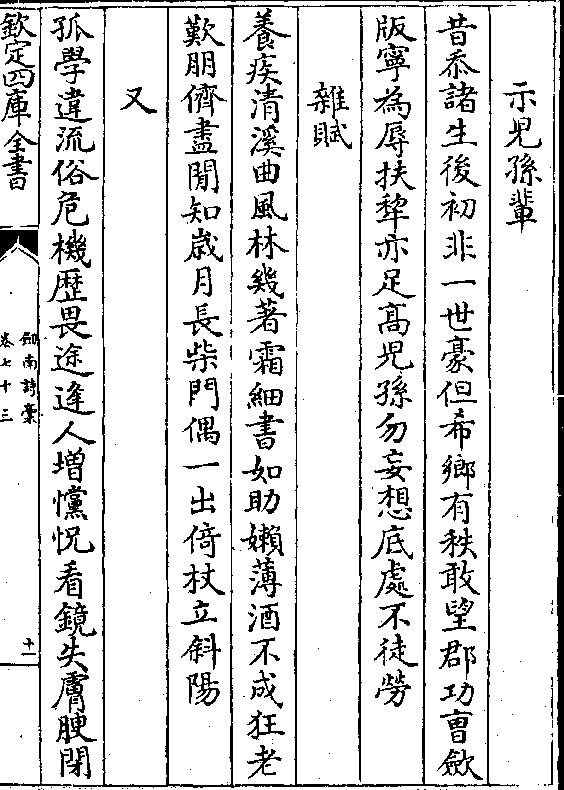 示兒孫輩
昔忝諸生後初非一世豪但希鄉有秩敢望郡功曹歛
版寧為辱扶犂亦足髙兒孫勿妄想底處不徒勞
雜賦
養疾清溪曲風林幾著霜細書如助嬾薄酒不成狂老
歎朋儕盡閒知嵗月長柴門偶一出倚杖立斜陽
又
孤學違流俗危機歴畏途逢人增戃怳看鏡失膚腴閉
欽定四庫全書
劒南詩稾
卷七十三
十一